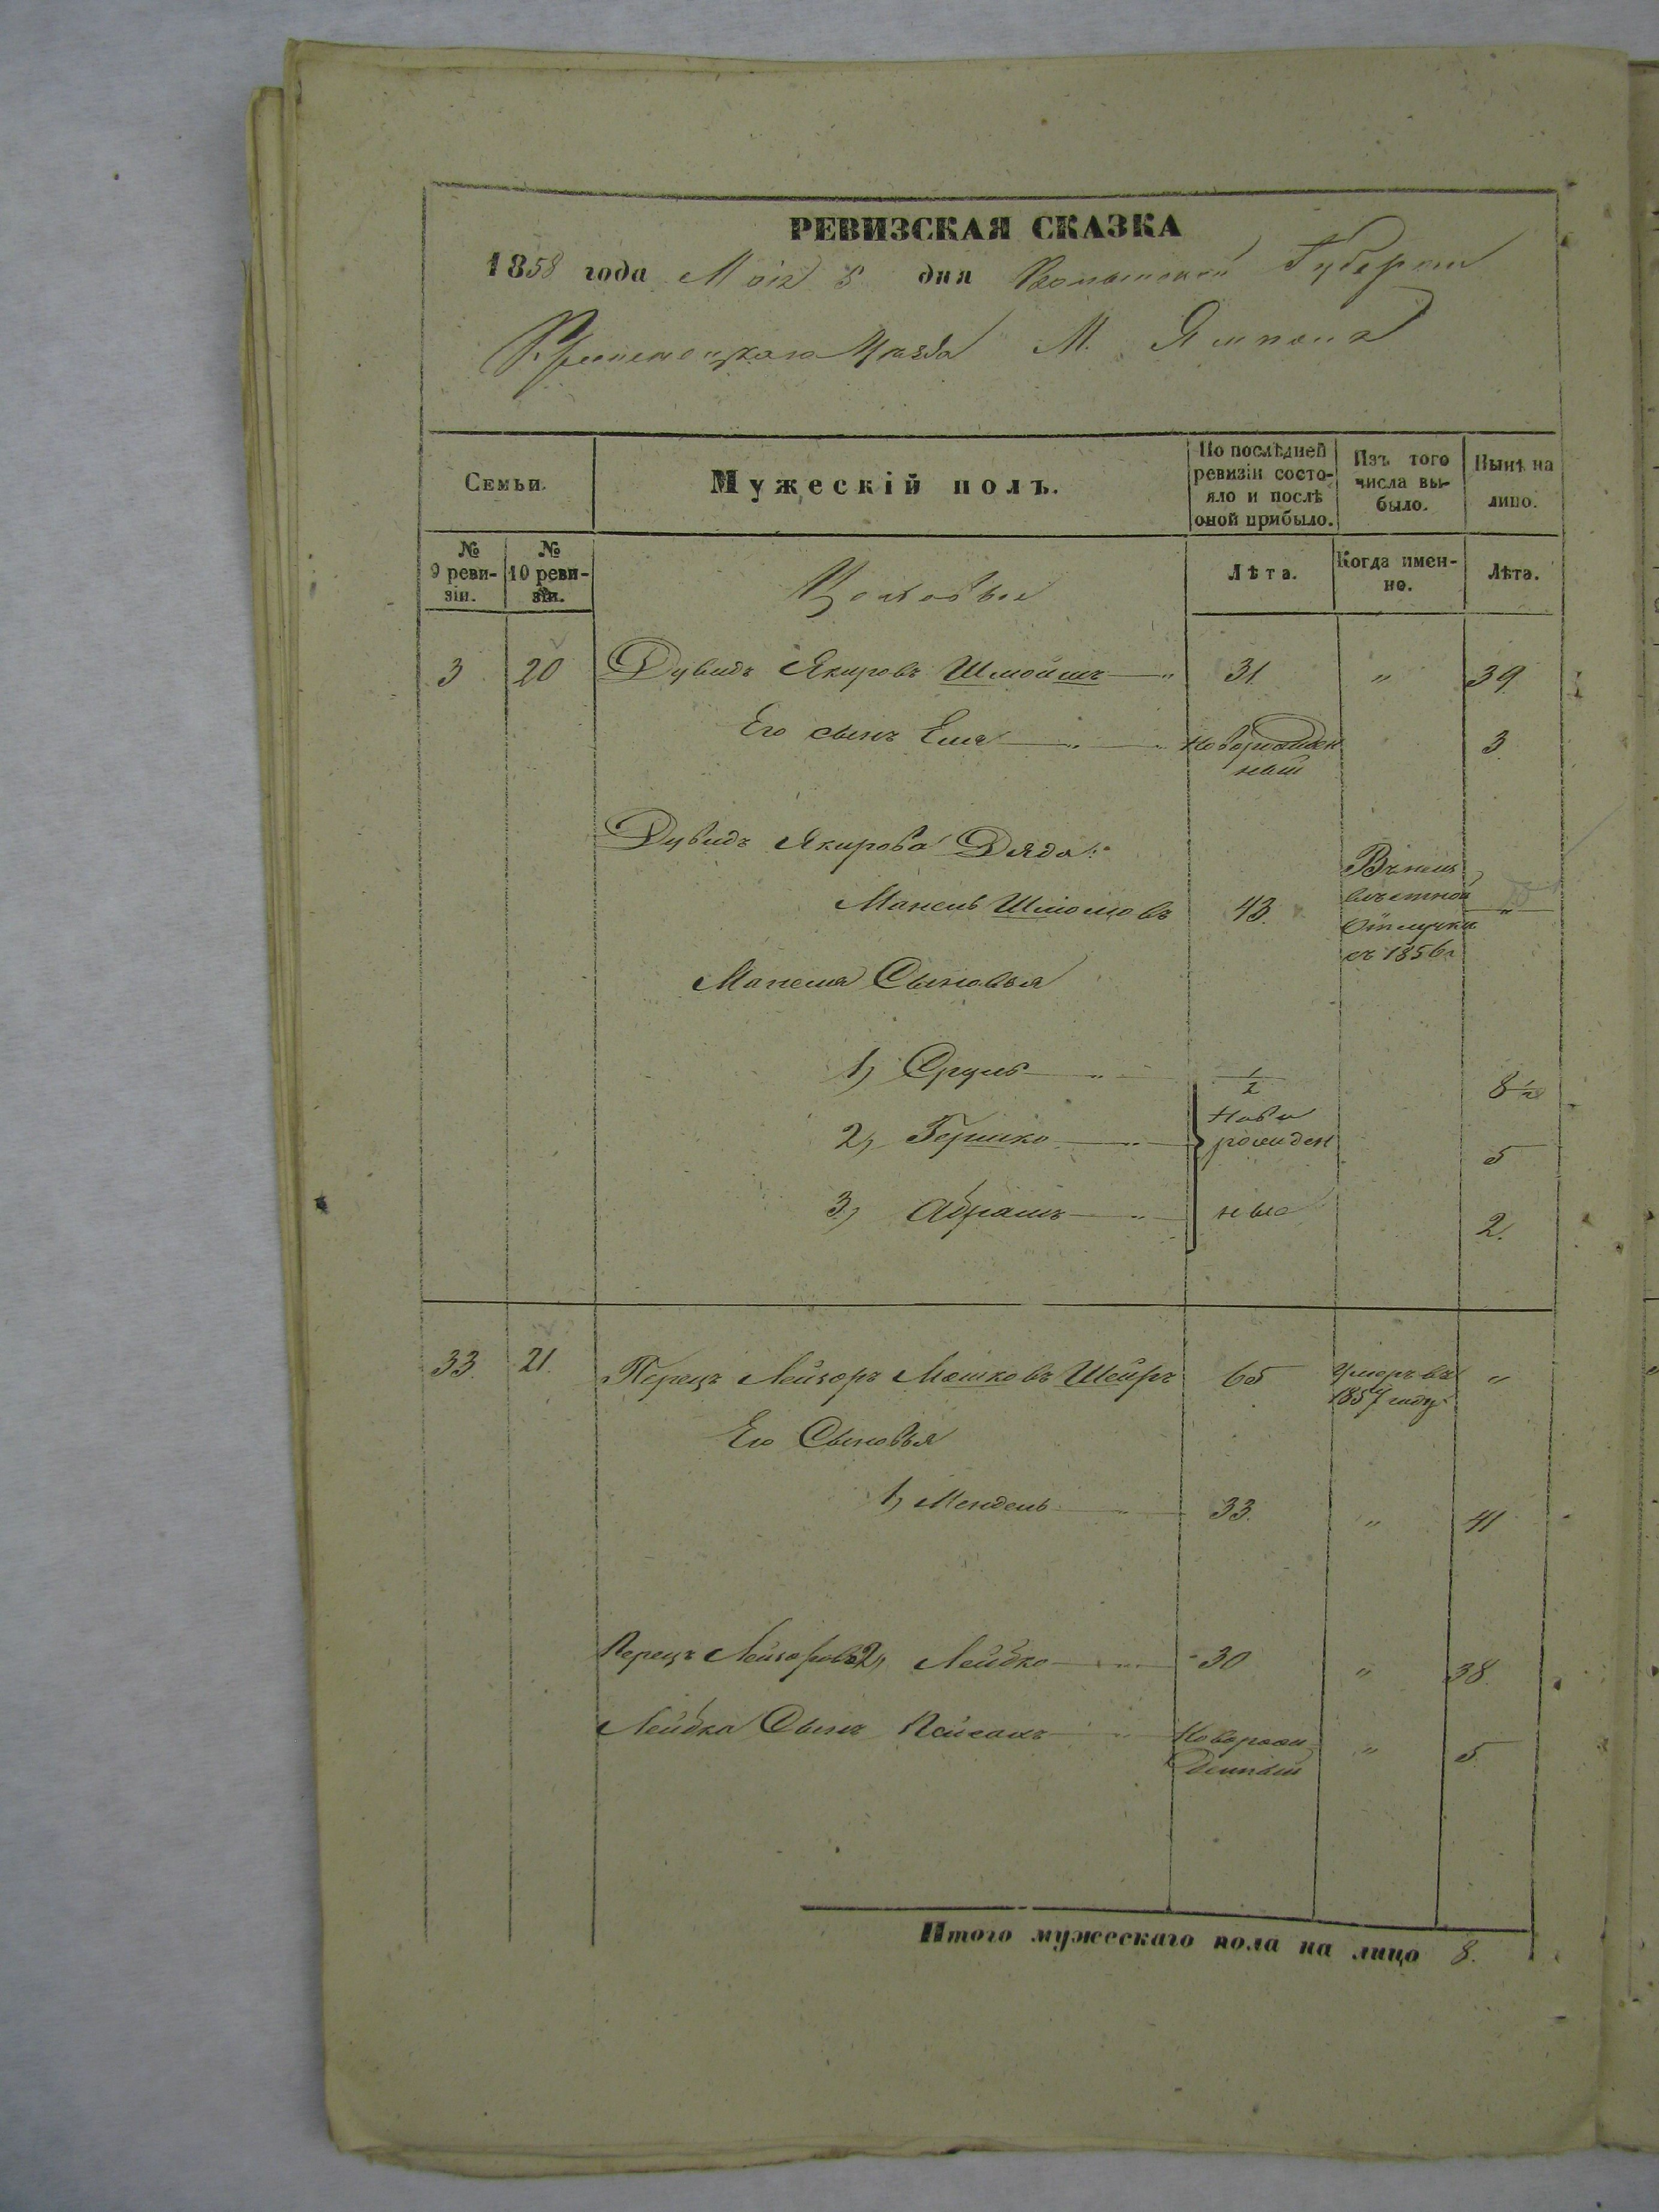 РЕВИЗСКАЯ СКАЗКА
1858 года Маія 8 дня Волынской Губерніи
Кременецкаго Уезда М. Ямполя
Семьи.
Мужескій полъ.
По послѣдней ревизіи состо-
яло и послѣ
оной прибыло.
Изъ того
числа вы-
было.
Нынѣ на
лицо.
№
9 реви-
зіи.
№
10 реви-
зіи.
Лѣта.
Когда имен-
но.
Лѣта.
3 20 Дувидъ Якировъ Шмойшъ " 31 " 39
Его сынъ " Новорожден 3
ный
Дувидъ Якирова Дядя:
Манель Шмойшовъ 43. "
отлучки
съ 1856г
Манеля Сыновья
1, Сруль " 1/2 8 1/2
2, Гершко " Ново
рожден 5
3, Абрамъ " ные 2.
33. 21. Перецъ Лейзоръ Мошковъ Шейръ 65 Умеръ въ "
1857 году
Его Сыновья
1, Мендель " 33. " 41
Перецъ Лейзорова 2, Лейбко " 30 " 38.
Лейбка Сынъ Пейсахъ " Новорож " 5
денный
Итого мужескаго пола на лицо 8.